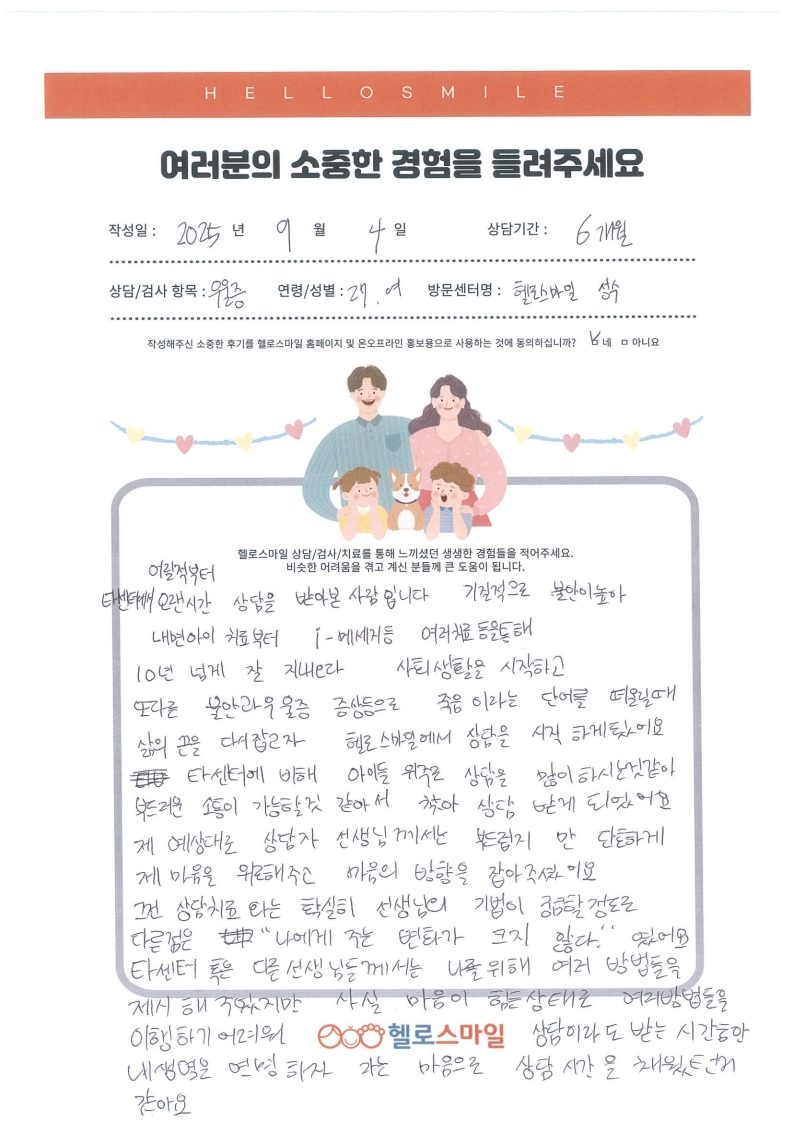 HELLOSMILE
여러분의 소중한 경험을 들려주세요
작성일 : 2025 년 9 월 4 일 상담기간 : 6개월
상담/검사 항목 : 우울증 연령/성별 : 27. 여 방문센터명 : 헬로스마일 성수
작성해주신 소중한 후기를 헬로스마일 홈페이지 및 온오프라인 홍보용으로 사용하는 것에 동의하십니까? 네 아니요
헬로스마일 상담/검사/치료를 통해 느끼셨던 생생한 경험들을 적어주세요.
비슷한 어려움을 겪고 계신 분들께 큰 도움이 됩니다.
어릴적부터
타센터에서 오랜시간 상담을 받아본 사람입니다 기질적으로 불안이높아
내면아이 치료부터 i-메세지등 여러치료 등을통해
10년 넘게 잘 지내다 사회생활을 시작하고
또다른 불안과우울증 증상등으로 죽음 이라는 단어를 떠올릴때
삶의 끈을 다시잡고자 헬로스마일에서 상담을 시작 하게됐어요
타센터에 비해 아이들 위주로 상담을 많이하시는것같아
부드러운 소통이 가능할것 같아서 찾아 상담 받게 되었어요
제 예상대로 상담자 선생님께서는 부드럽지 만 단호하게
제 마음을 위로해주고 마음의 방향을 잡아주셨어요
그전 상담치료 와는 확실히 선생님의 기법이 궁금할정도로
다른점은 "나에게 주는 변화가 크지 않다." 였어요
타센터 혹은 다른선생님들께서는 나를위해 여러 방법들을
제시 해 주었지만 사실 마음이 힘든상태로 여러방법들을
이행하기 어려워 상담이라도 받는 시간동안
내생명을 연명하자 라는 마음으로 상담 시간을 채웠던거
같아요
헬로스마일